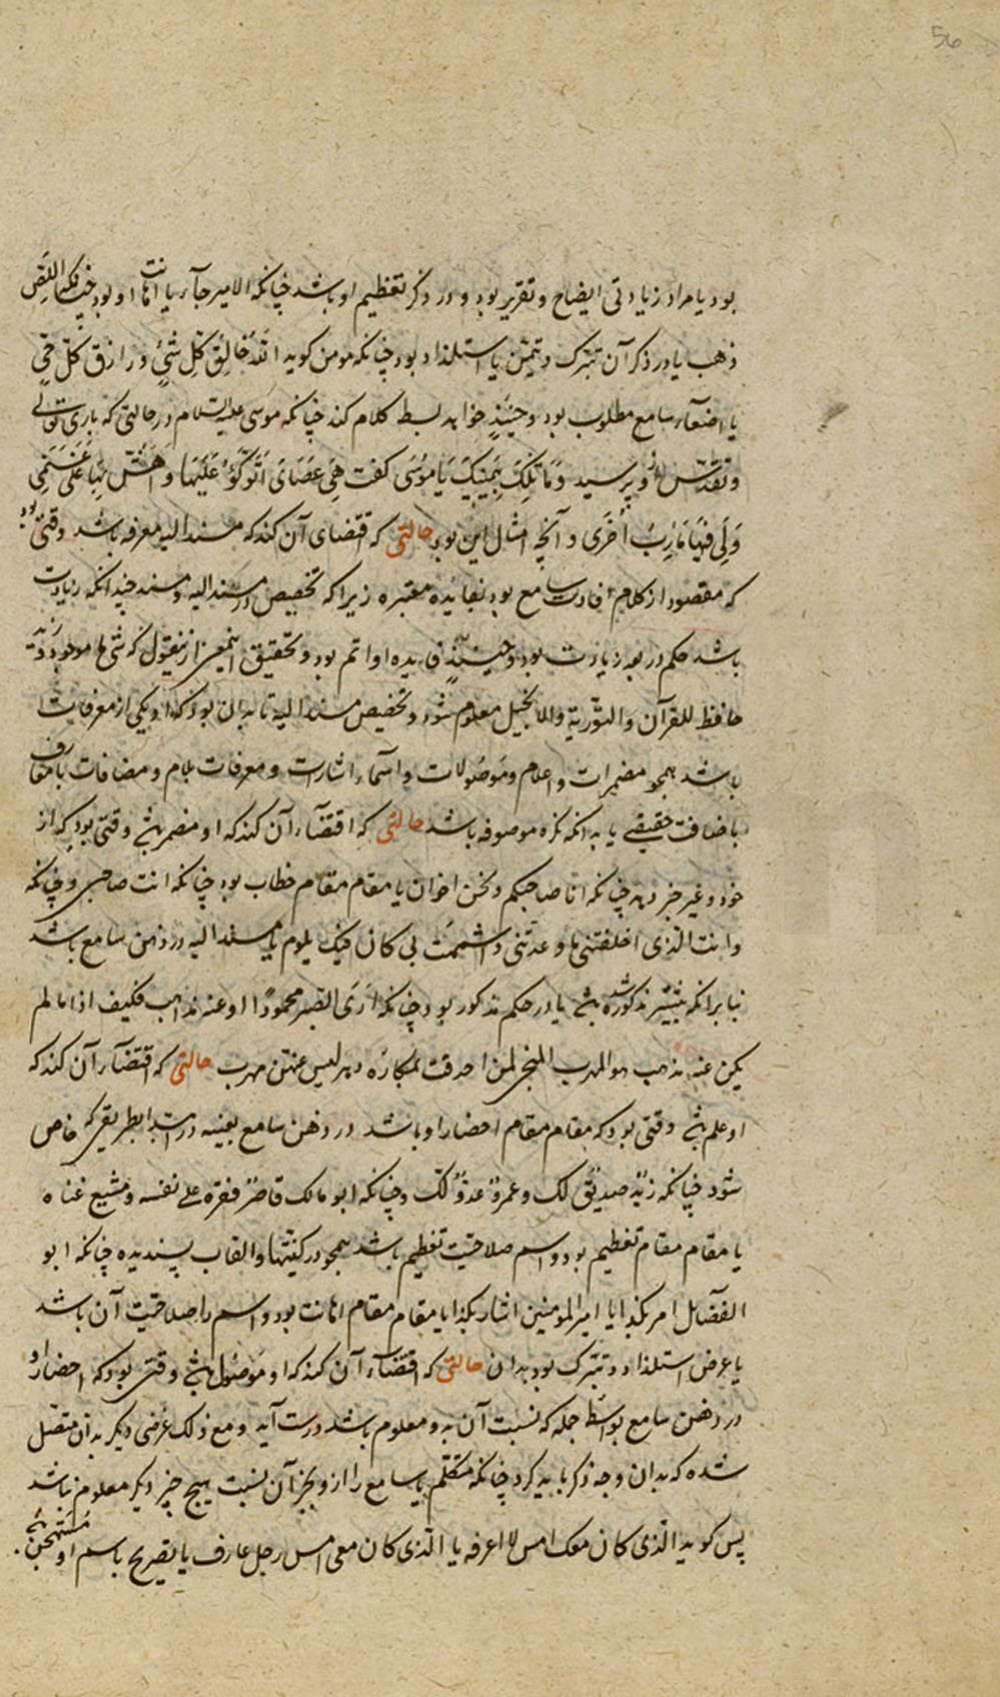 56
بود یا مراد زیادتی ایضاح و تقریر بود و در ذکر تعظیم او باشد چنانکه الامیر جآء یا اهانت او بود چنانکه اللص
ذهب یا در ذکر آن تبرک و تیمن یا استلذاذ بود چنانکه مومن کوید الله خالق کل شیء و رازق کل حی
یا اصغاء سامع مطلوب بود و حینئذ خواهد بسط کلام کند چنانکه موسی علیه السلام در حالتی که باری تعالی
و تقدس از و پرسید وَمَا تِلْكَ بِیَمِینِكَ یَا مُوسَی کفت هِیَ عَصَایَ اَتَوَکَّؤُ عَلَیْهَا وَ اَهُشُّ بِهَا عَلَی غَنَمِی
وَلِیَ فِیهَا مَآرِبُ اُخْرَی و آنچه امثال این بود حالتی که اقتضای آن کند که مسند الیه معرفه باشد وقتی بود
که مقصود از کلام افادت سامع بود بفایده معتبره زیرا که تخصیص در مسند الیه و مسند چندانکه زیادت
باشد حکم در بعد زیادت بود و حینئذ فایده او اتم بود و تحقیق این معنی از نقول که شیء ما موجود و زید
حافظ للقرآن والتوریة والانجیل معلوم شود و تخصیص مسند الیه تا بدان بود که او یکی از معرفات
باشد همچو مضمرات و اعلام و موصولات و اسمآء اشارت و معرفات بلام و مضافات بامعارف
باضافت حقیقی یا بدانکه نکره موصوفه باشد حالتی که اقتضآء آن کند که او مضمر باشد وقتی بود که از
خود و غیر خبر دهد چنانکه انا صاحبکم و نحن اخوان یا مقام مقام خطاب بود چنانکه انت صاحبی و چنانکه
وانت الذی اخلفتنی ما وعدتنی واشمت بی من کان فیک یلوم یا مسند الیه در ذهن سامع باشد
بنا بر انکه بیشتر مذکور شده باشد یا در حکم مذکور بود چنانکه اری الصبر محمودا وعنه مذاهب فکیف اذا ما لم
یکن عنه مذهب هو المهرب المنجی لمن احدقت به مکاره دهر لیس عنهن مهرب حالتی که اقتضآء آن کند که
او علم باشد وقتی بود که مقام مقام احضار او باشد در ذهن سامع بعینه در ابتدا بطریقی که خاص
شود چنانکه زید صدیق لک و عمرو عدو لک و چنانکه ابو مالک قاصر فقره علی نفسه و مشیع غناه
یا مقام مقام تعظیم بود و اسم صلاحیت تعظیم باشد همچو در کنیتها و القاب پسندیده چنانکه ابو
الفضآئل امر بکذا یا امیر المومنین اشار بکذا یا مقام مقام اهانت بود و اسم را صلاحیت آن باشد
یا عرض استلذاذ و تبرک بود بدان حالتی که اقتضآء آن کند که او موصول باشد وقتی بود که احضار او
در ذهن سامع بواسطه جمله که نسبت آن بدو معلوم باشد درست آید و مع ذلک غرضی دیکر بدان متصل
شده که بدان وجه ذکر باید کرد چنانکه متکلم یا سامع را از و بجز آن نسبت هیچ چیز دیکر معلوم نباشد
پس کوید الذی کان معک امس لا اعرفه یا الذی کان معی امس رجل عارف یا تصریح باسم او مستهجن باشد